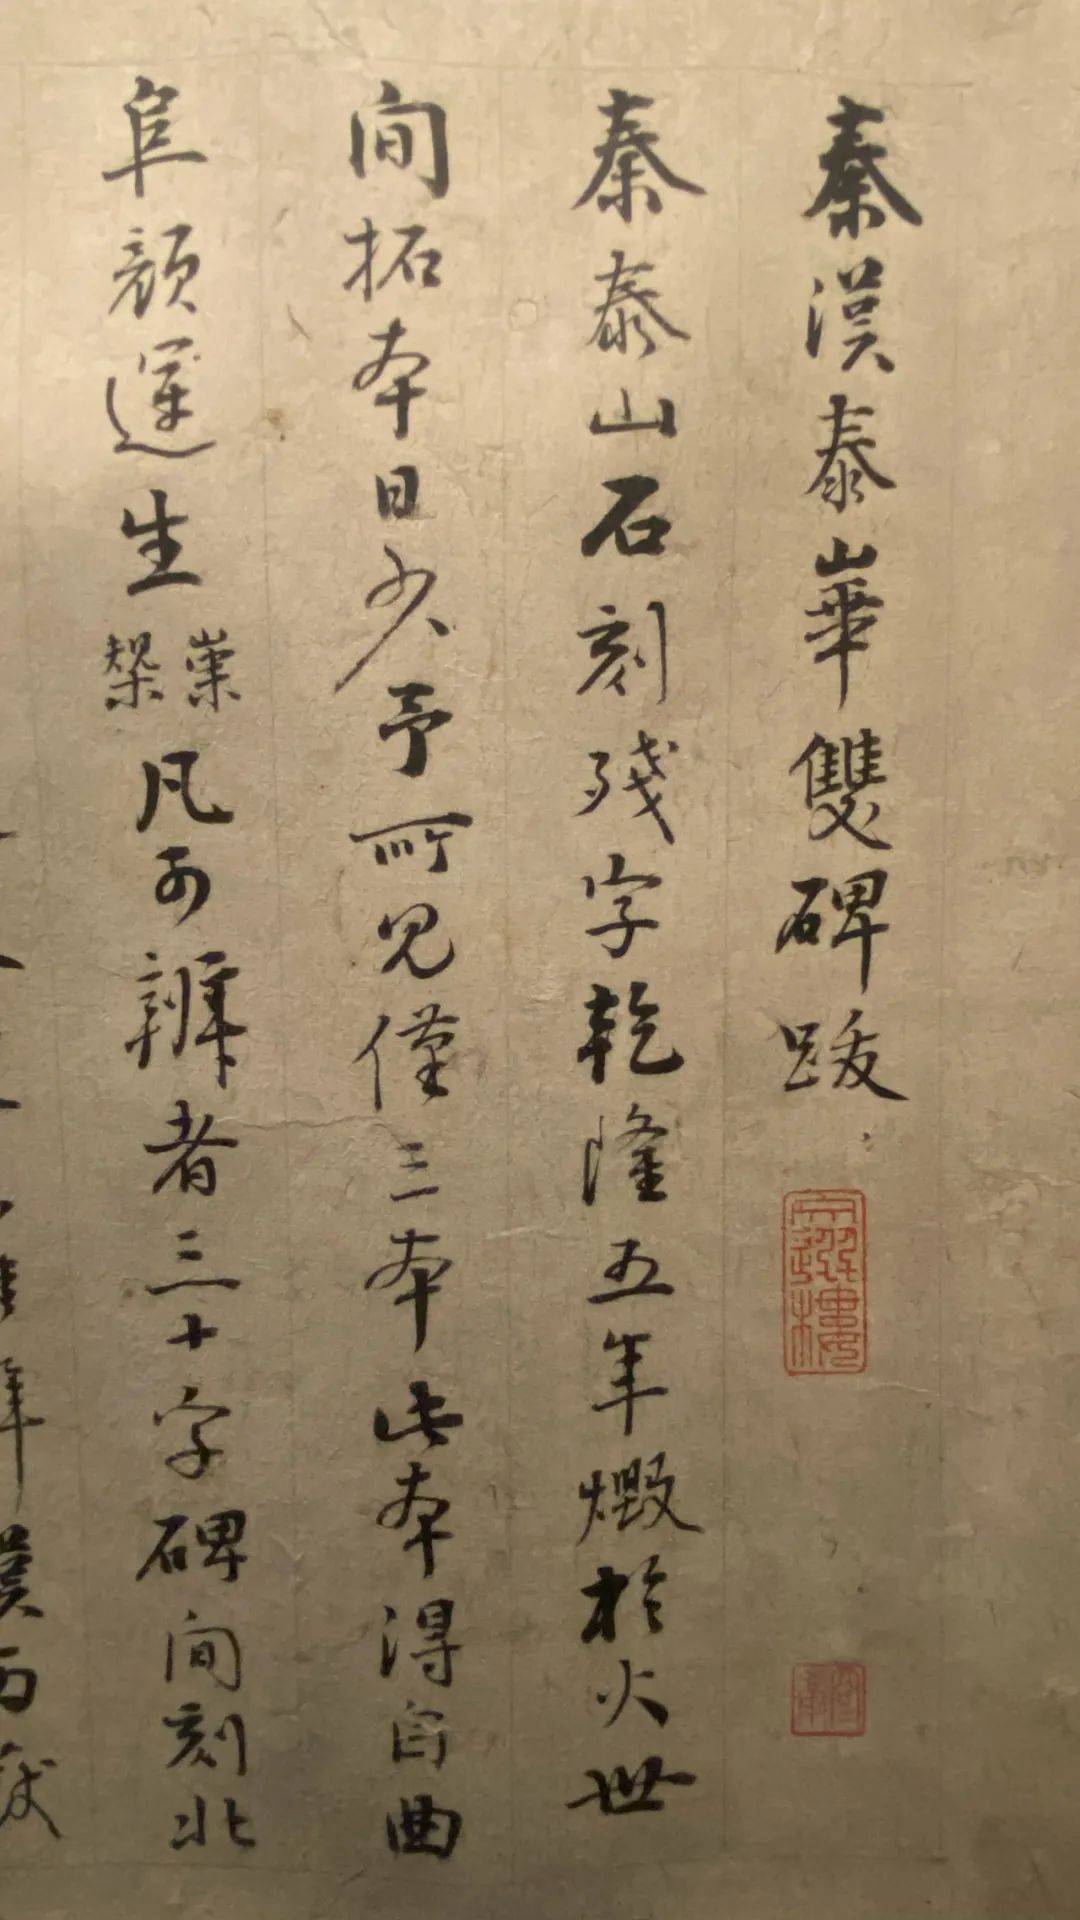 秦漢泰華雙碑跋
秦泰山石刻殘字乾隆五年燬於火世
間拓本日少予所見僅三本此本得自曲
阜顏運生崇槼凡可辨者三十字碑間刻北